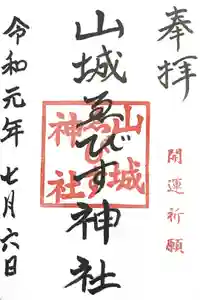 奉拝
開運祈願
山城ゑびす神社
山城
ゑびす
神社
令和元年七月六日